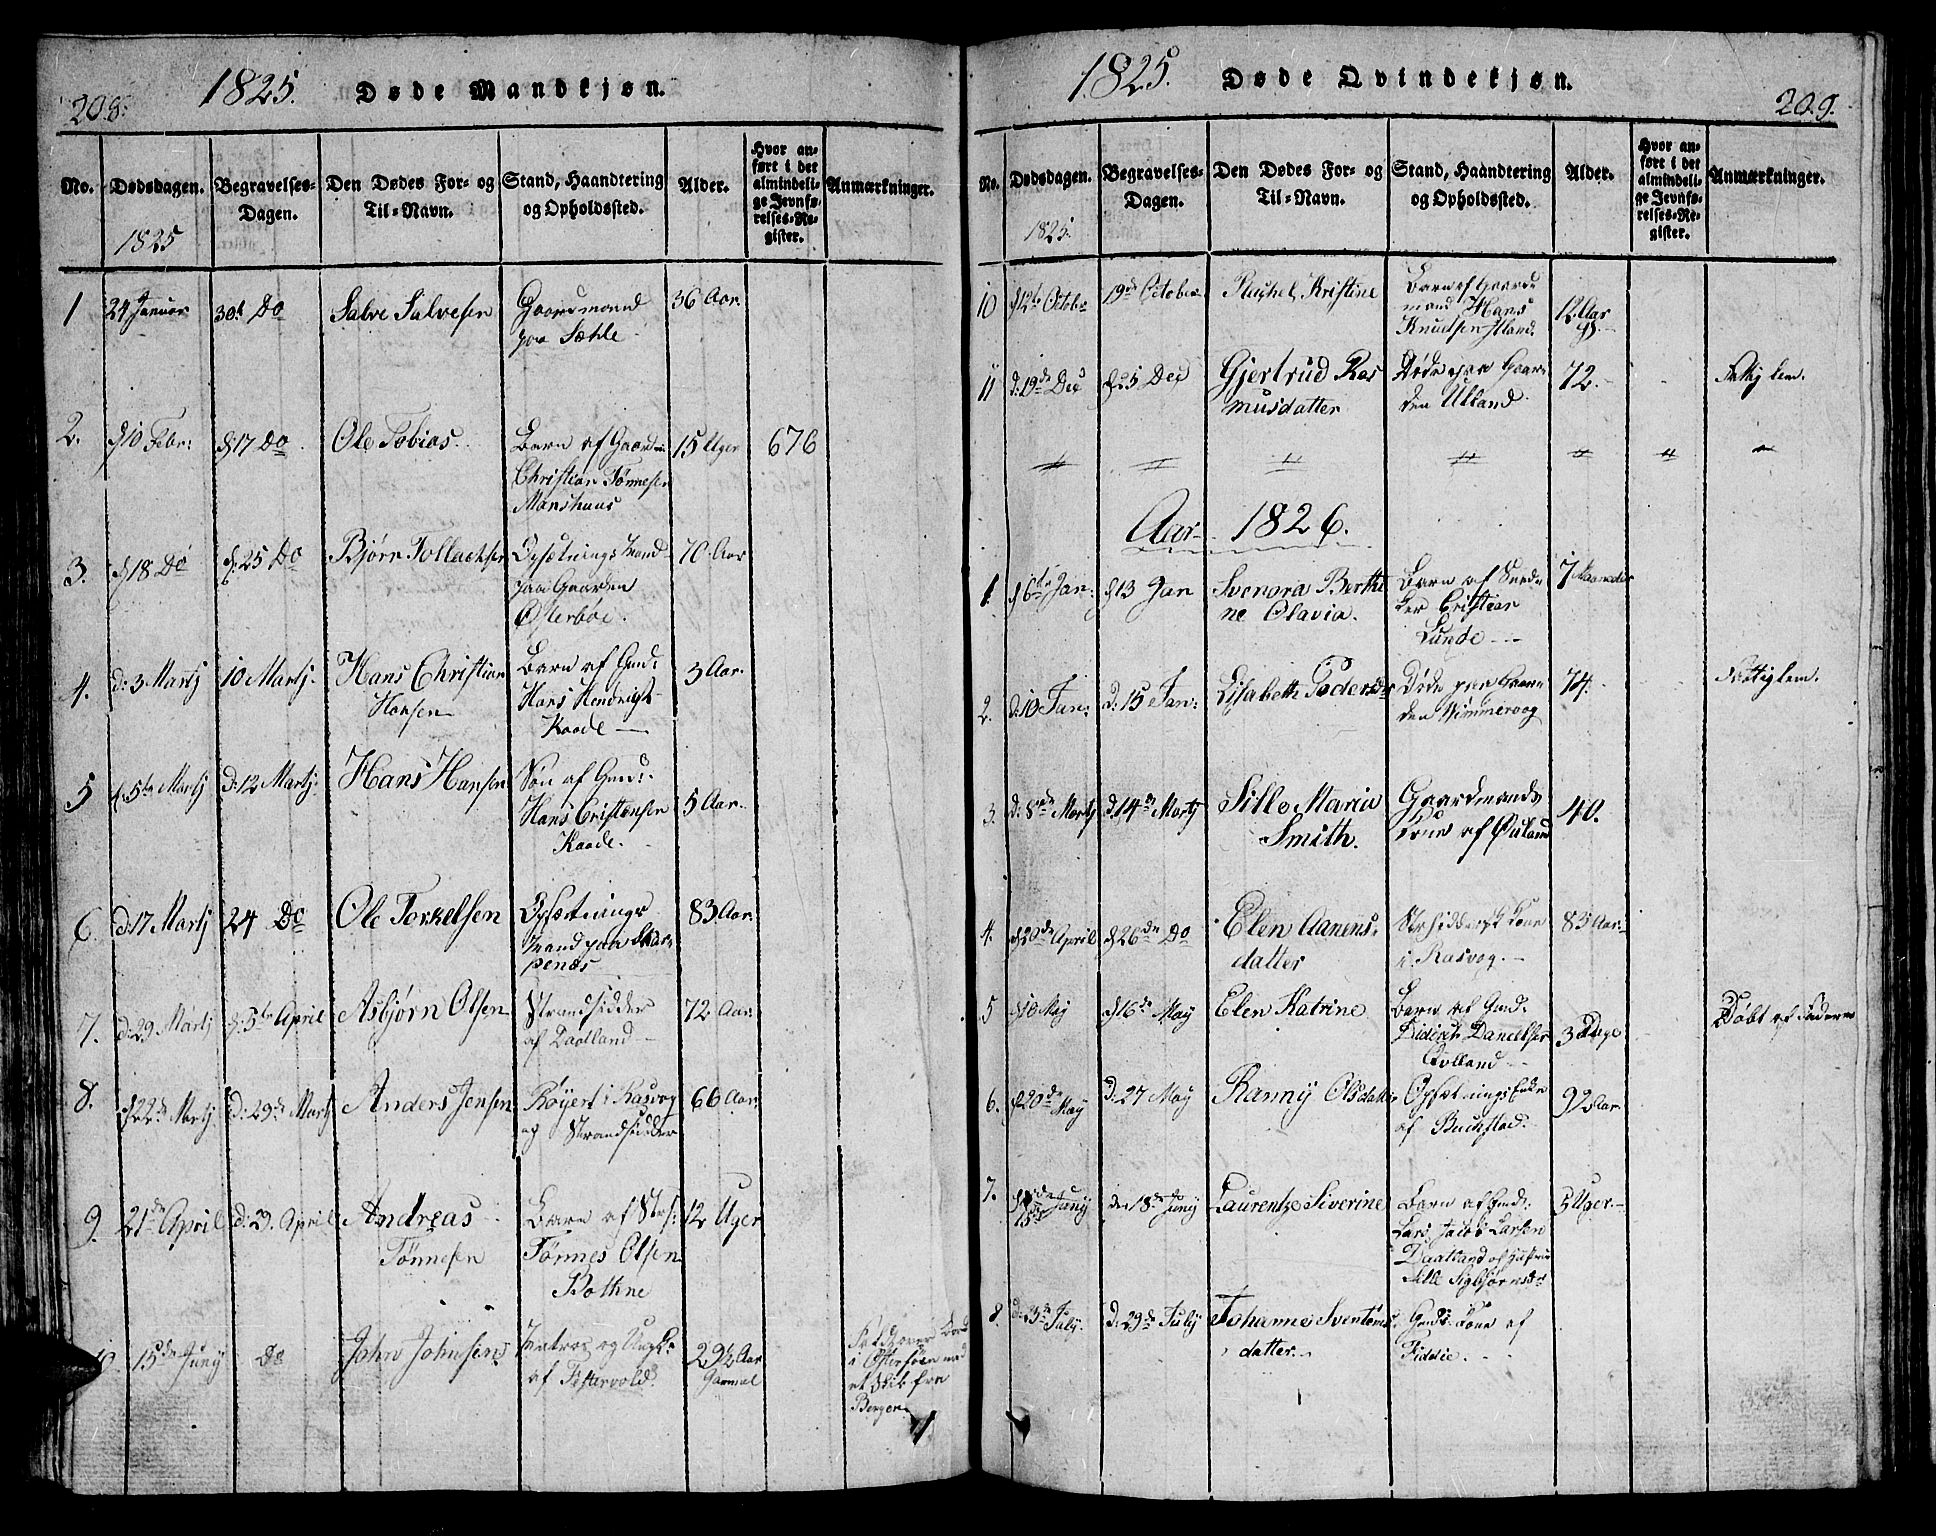 208.
1825.
Døde Mandkjøn.
No.
Dødsdagen.
1825
Begravelses-
Dagen.
Den Dødes For- og
Til-Navn.
Stand, Haandtering
og Opholdssted.
Alder.
Hvor an-
ført i det
almindeli-
ge Jevnfø-
relses-Re-
gister.
Anmærkninger.
1
24 Januar
30t Do
Salve Salvesen
Gaardmand
paa Sæhle
36 Aar.
2.
d 10 Febr:
d 17 Do
Ole Tobias
Barn af Gaardm:
Christian Tønnesen
Monshuus
15 Uger
676
3.
d 18 Do
d: 25 Do
Bjørn Tollachsen
Opsætnings Mand
paa Gaarden
Østerbøe.
70 Aar
4.
d: 3 Martj
10 Martj.
Hans Christian
Hansen
Barn af Gmd:
Hans Hendrigs
Kaade
3 Aar.
5
d: 5te Martj
D: 12 Martj.
Hans Hansen
Søn af Gmd:
Hans Cristensen
Kaade.
5 Aar.
6.
d: 17 Martj
24 Do
Ole Torkelsen
Opsætnings
Mand paa Skar-
penæs
83 Aar.
7.
d: 29 Martj
d: 5te April
Asbjørn Olsen
Strandsidder
af Daatland
72 Aar.
8.
d 22de Martj.
D: 29de Martj
Anders Jensen
i Rasvog
og Strandsidder
66 Aar.
9.
21de April
d: 29. April
Andreas
Tønnesen
Barn af Strs:
Tønnes Olsen
Bothne
12 Uger
10.
15de Juny
Do
John Johnsen
Matros og Ungk:
af Festervold.
29½ Aar
Gammel
over Bord
i Østersøen med
et Skib fra
Bergen.
1825.
Døde Qvindekjøn.
209.
No.
Dødsdagen.
1825.
Begravelses-
Dagen.
Den Dødes For- og
Til-Navn.
Stand, Haandtering
og Opholdssted.
Alder.
Hvor an-
ført i det
almindeli-
ge Jevnfø-
relses-Re-
gister.
Anmærkninger.
10
d 12te Octobr
19de October
Rachel Kristine
Barn af Gaard-
mand Hans
Knudsen Iland.
12. Aar
11
d: 19de Dec
d 25 Dec
Gjertrud Ras
musdatter
Døde paa Gaar-
den Ulland.
72.
Fattig lem.
Aar 1826.
1
d 6te Jan:
d 13 Jan
Svenora Berthi
ne Olavia.
Barn af Sned-
ker Cristian
Lunde
7 Maaneder
2.
d: 10 Jan:
d: 15 Jan:
Elisabeth Pedersdr
Døde paa Gaar-
den Nimmervog
74.
Fattig lem.
3.
d: 8de Martj
d: 14de Martj
Sille Maria
Smith.
Gaardmands
Kone af Øuland
40.
4.
d 20de April
d 26de Do
Elen Aanens-
datter
Kone
i Rasvog.
83 Aar.
5
d 10 Maj
d 16de May
Elen Katrine
Barn af Gmd:
Diderich Danielsen
3 Dage
Døbt af Faderen
6.
d 20de
May
D: 27 May
Ranny Olsdatter
Opsætnings Enke
af Buchstad.
92 Aar.
7.
15de Juny
den 18de Juny
Laurentze Siverine
Barn af Gmd:
Lars Jacob Larsen
Daatland og Hustrue
Sille Sigbjørnsdr
3 Uger.
8.
d: 23de
July.
D: 29de July
Johanne Sventons-
datter
Gmds Kone af
Fiddie.